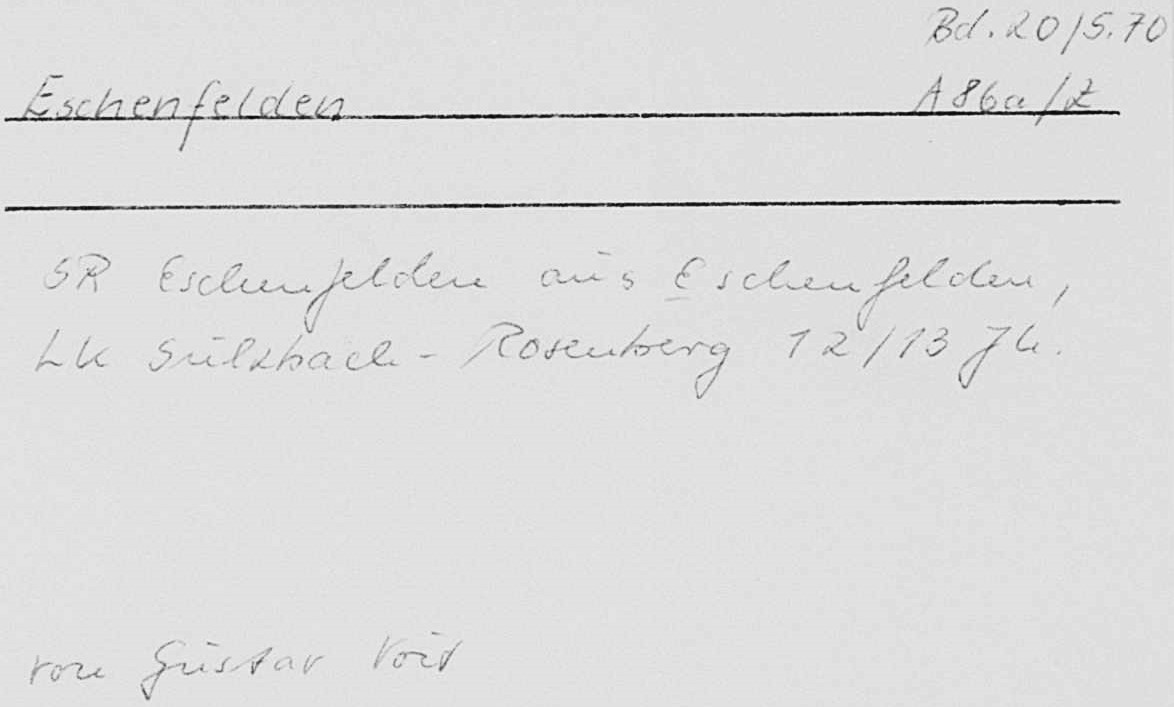 Bd. 20/S. 70
Eschenfelden A 86a/Z
SR Eschenfelden aus Eschenfelden,
LK Sulzbach-Rosenberg 12/13 Jh.
von Gustav Voit